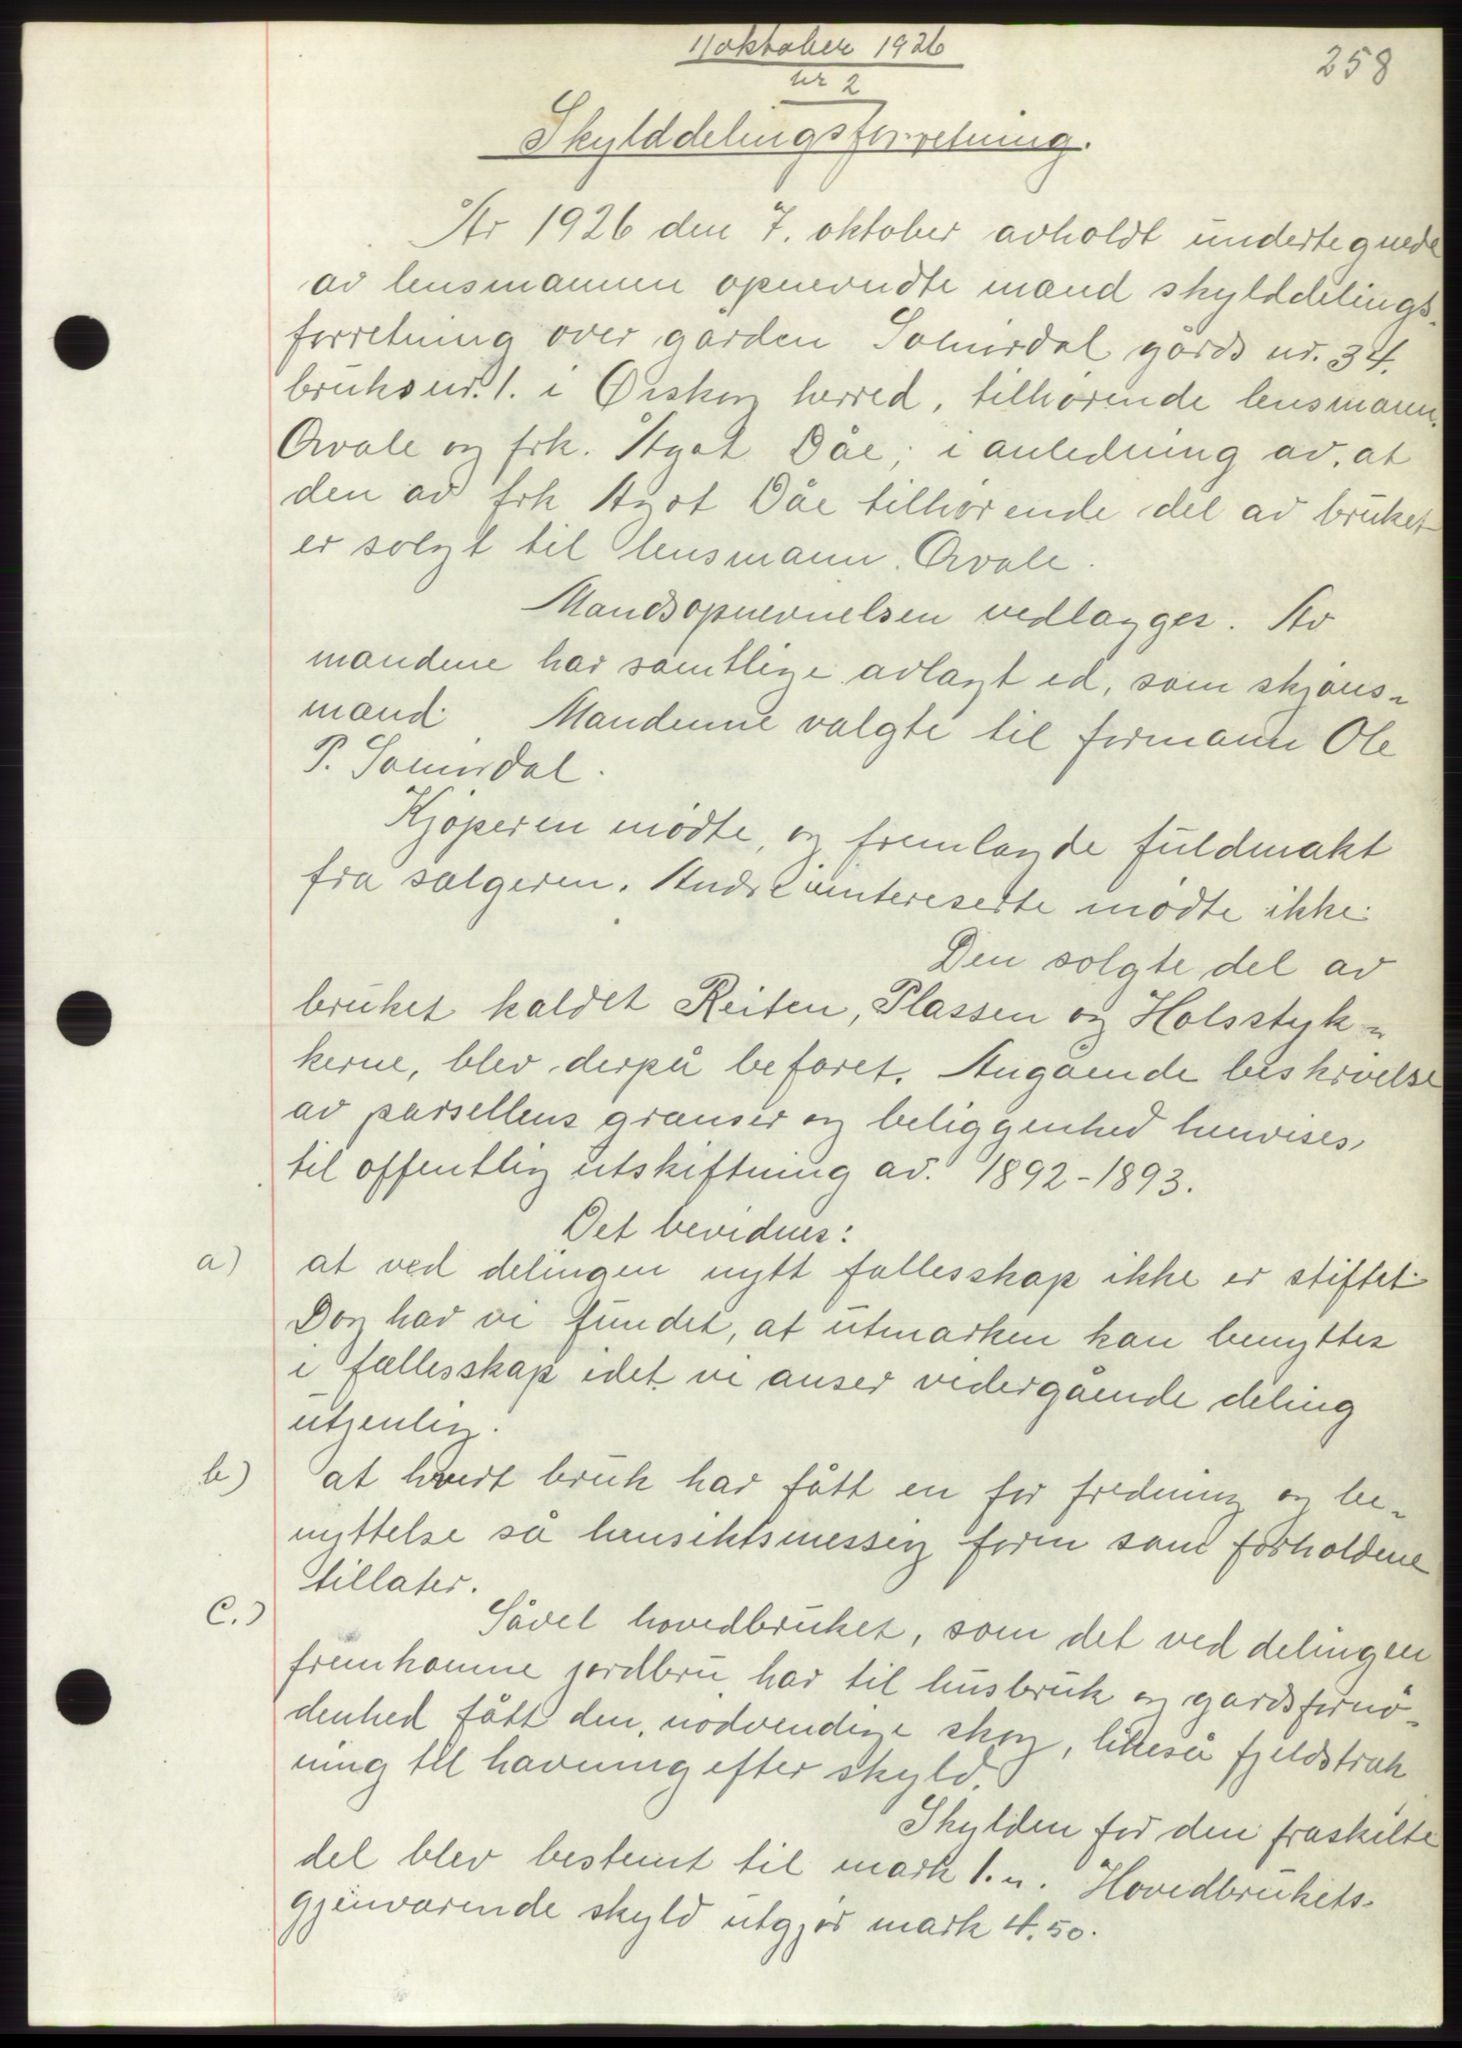 11 oktober 1926
nr 2
258
Skylddelingsforretning.
År 1926 den 7. oktober avholdt undertegnede
av lensmannen opnevndte mænd skylddelings-
forretning over gården Solnørdal gårds nr. 34.
bruksnr. 1. i Ørskog herred, tilhørende lensmann
Orvale og frk. Ågot Dåe; i anledning av, at
den av frk Agot Dåe tilhørende del av bruket
er solgt til lensmann. Orvale.
Mandsopnevnelsen vedlægges. Av
mændene har samtlige avlagt ed, som skjøns-
mænd. Mændenne valgte til formann Ole
P. Solnørdal.
Kjøperen mødte, og fremlagde fuldmakt
fra sælgeren. Andre intereserte mødte ikke.
Den solgte del av
bruket kaldet Reiten, Plassen og Holsstyk-
kerne, blev derpå befaret. Angående beskrivelse
av parsellens grænser og beliggenhed henvises
til offentlig utskiftning av. 1892-1893.
Det bevidnes:
a) at ved delingen nytt fællesskap ikke er stiftet.
Dog har vi fundet, at utmarken kan benyttes
i fællesskap idet vi anser videregående deling
utjenlig.
b) at hvert bruk har fått en for fredning og be-
nyttelse så hensiktsmessig form som forholdene
tillater.
C.) Såvel hovedbruket, som det ved delingen
fremkomne jordbru har til husbruk og gardsfornø-
denhed fått den, nødvendige skog, likeså fjeldstræk
ning til havning efter skyld.
Skylden for den fraskilte
del blev bestemt til mark 1. ". Hovedbrukets
gjenværende skyld utgjør mark 4.50.